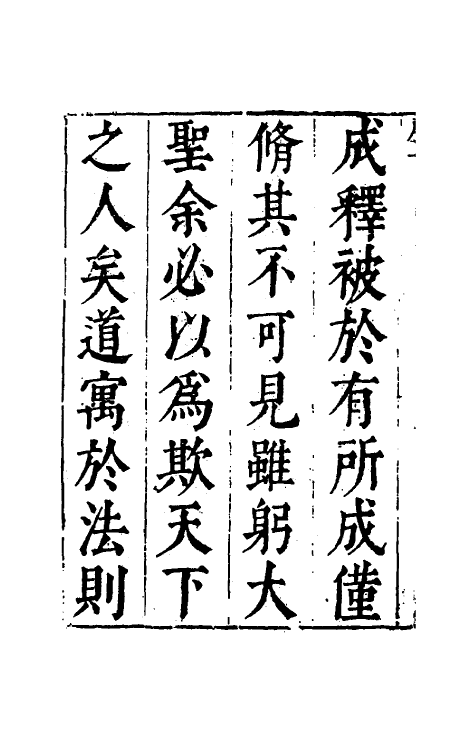 成釋被於有所成僅
脩其不可見雖躬大
聖余必以為欺天下
之人矣道寓於法則